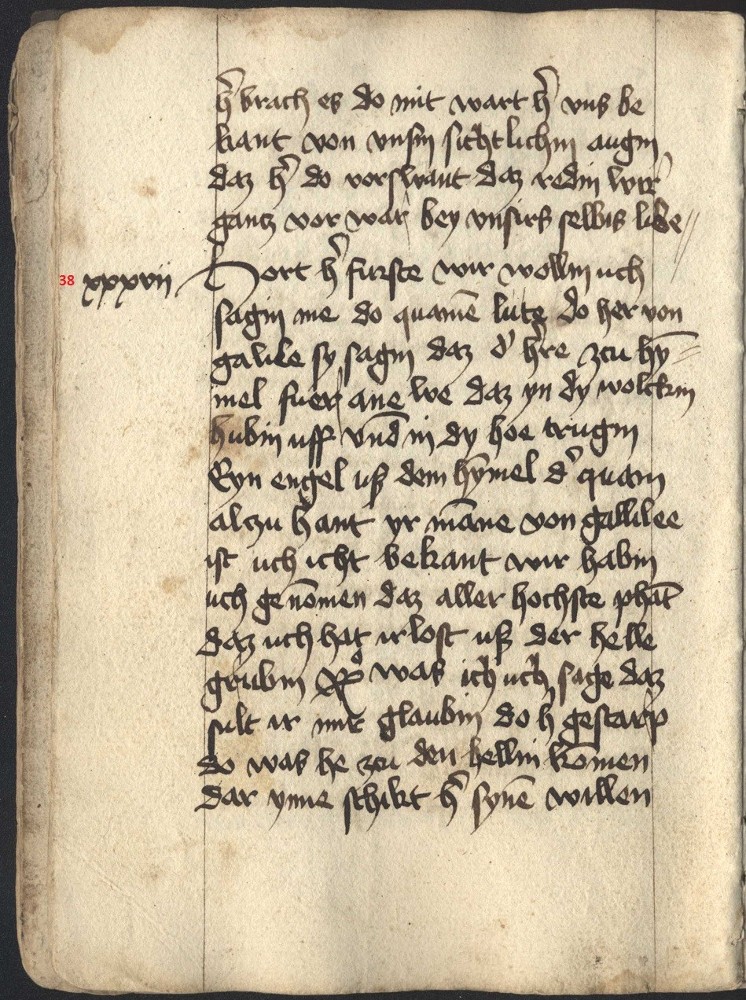 h̄ brach es do mit wart h̄ vns be
kant von vnsn̄ sichtlichin augin
daz h̄ do vorswant daz redin wir
gantz vor war bey vnsirs selbis libe
38 xxxvii Hort h̄ furste wir wollin uch
sagin me do quamē lute do her von
galile sy sagin daz d' h̄re zcu hȳ
mel fuer ane we daz yn dy wolckin
hubin uff vnd in dy hoe trugin
Eyn engel uß dem hȳmel d' quam
alczu hant yr mā̄ne von gallilee
ist uch icht bekant wir habin
uch genōmen daz aller hochste phāt
daz uch hat irlost uß der helle
grubin xp̄o was ich uch sage daz
sult ir mir glaubin do h̄ gestarp
do was he zcu den hellin kōmen
dar ynne schikt h̄ synē willen